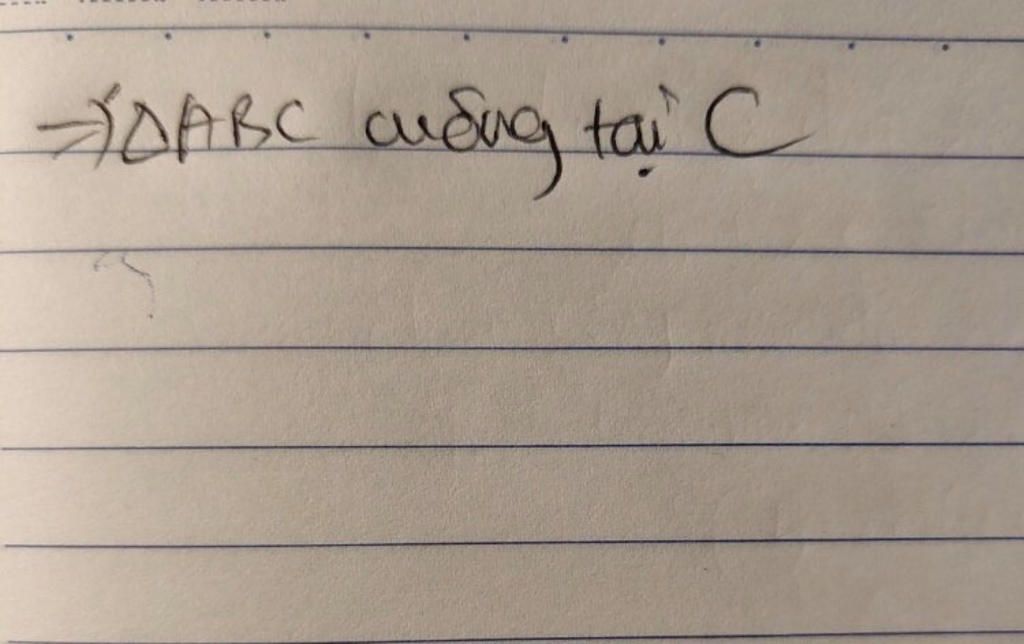 ⇒ ΔABC cuông tại C